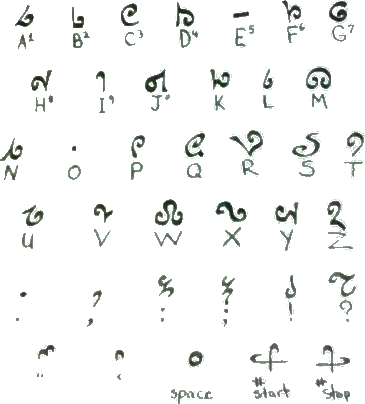 A¹ B² C³ D⁴ E⁵ F⁶ G⁷
H⁸ I⁹ J⁰ K L M
N O P Q R S T
U V W X Y Z
. , : ; ! ?
“ ‘ space #start #stop